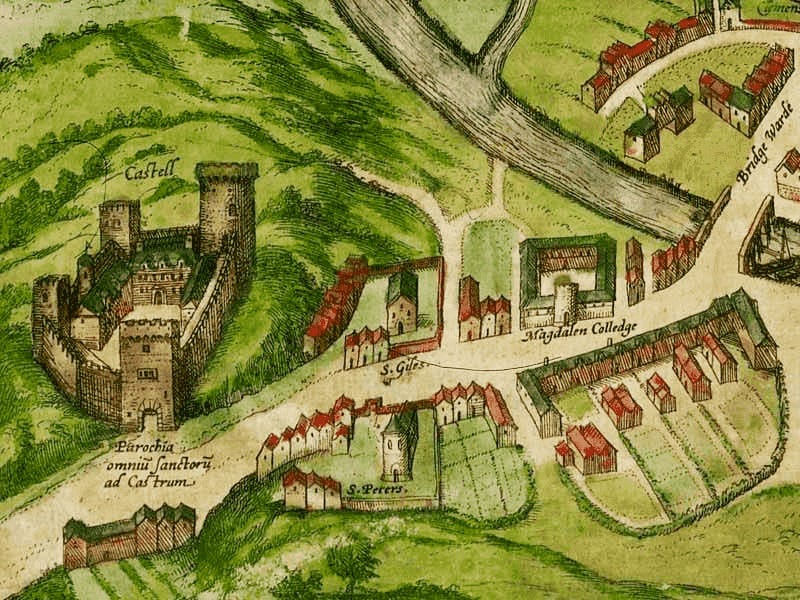 Castell
Bridge Warde
Magdalen Colledge
S. Giles.
Parochia
omniū sanctorū
ad Castrum
S. Peters.